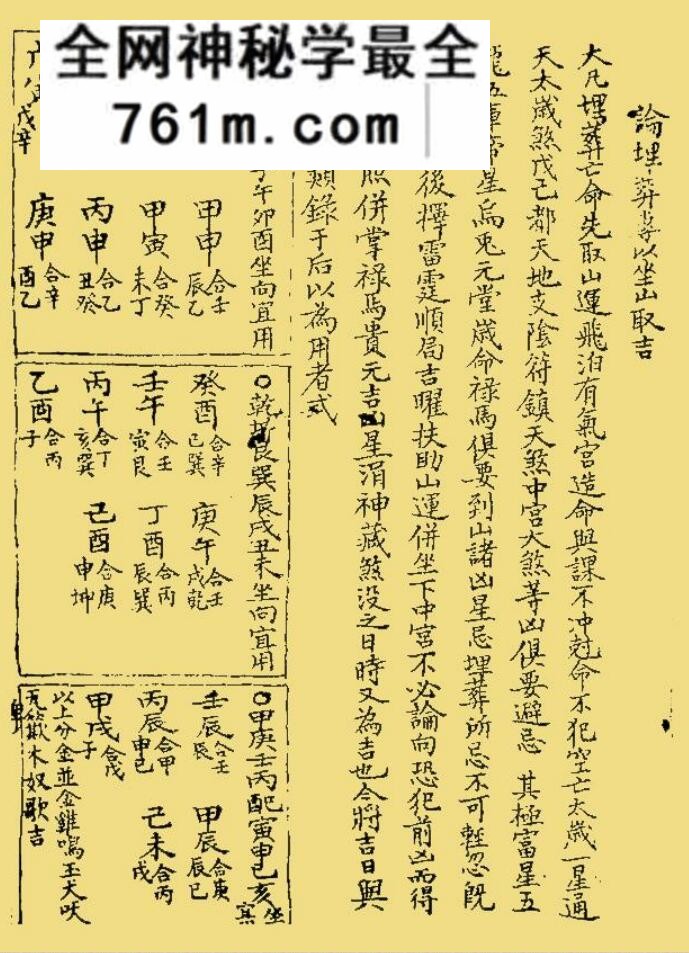 全网神秘学最全
761m.com
論埋葬專以坐山取吉
大凡埋葬亡命先取山運飛泊有氣宮造命與課不冲尅命不犯空亡太歲一星通
天太歲煞戊己都天地支陰符鎮天煞中宮大煞等凶俱要避忌 其極富星五
龍五庫帝星烏兎元堂歲命祿馬俱要到山諸凶星忌埋葬所忌不可輕忽既
後擇雷霆順局吉曜扶助山運併坐下中宮不必論向恐犯前凶而得
照併掌祿馬貴元吉星涓神藏煞没之日時又為吉也今將吉日與
類錄于后以為用者式
子午卯酉坐向宜用
甲申 合壬辰乙
甲寅 合癸未丁
丙申 合乙丑癸
戊辛 庚申 合辛酉乙
○乾艮巽辰戌丑未坐向宜用
癸酉 合辛巳巽 庚午 合壬戌乾
壬午 合壬寅艮 丁酉 合丙辰巽
丙午 合丁亥巽 己酉 合庚申坤
乙酉 合丙子
○甲庚壬丙配寅申巳亥坐宜
壬辰 合壬辰 甲辰 合庚辰巳
丙辰 合甲申巳 己未 合丙戌
甲戌 合戊子
以上分金並金雞鳴玉犬吠
木奴歌吉